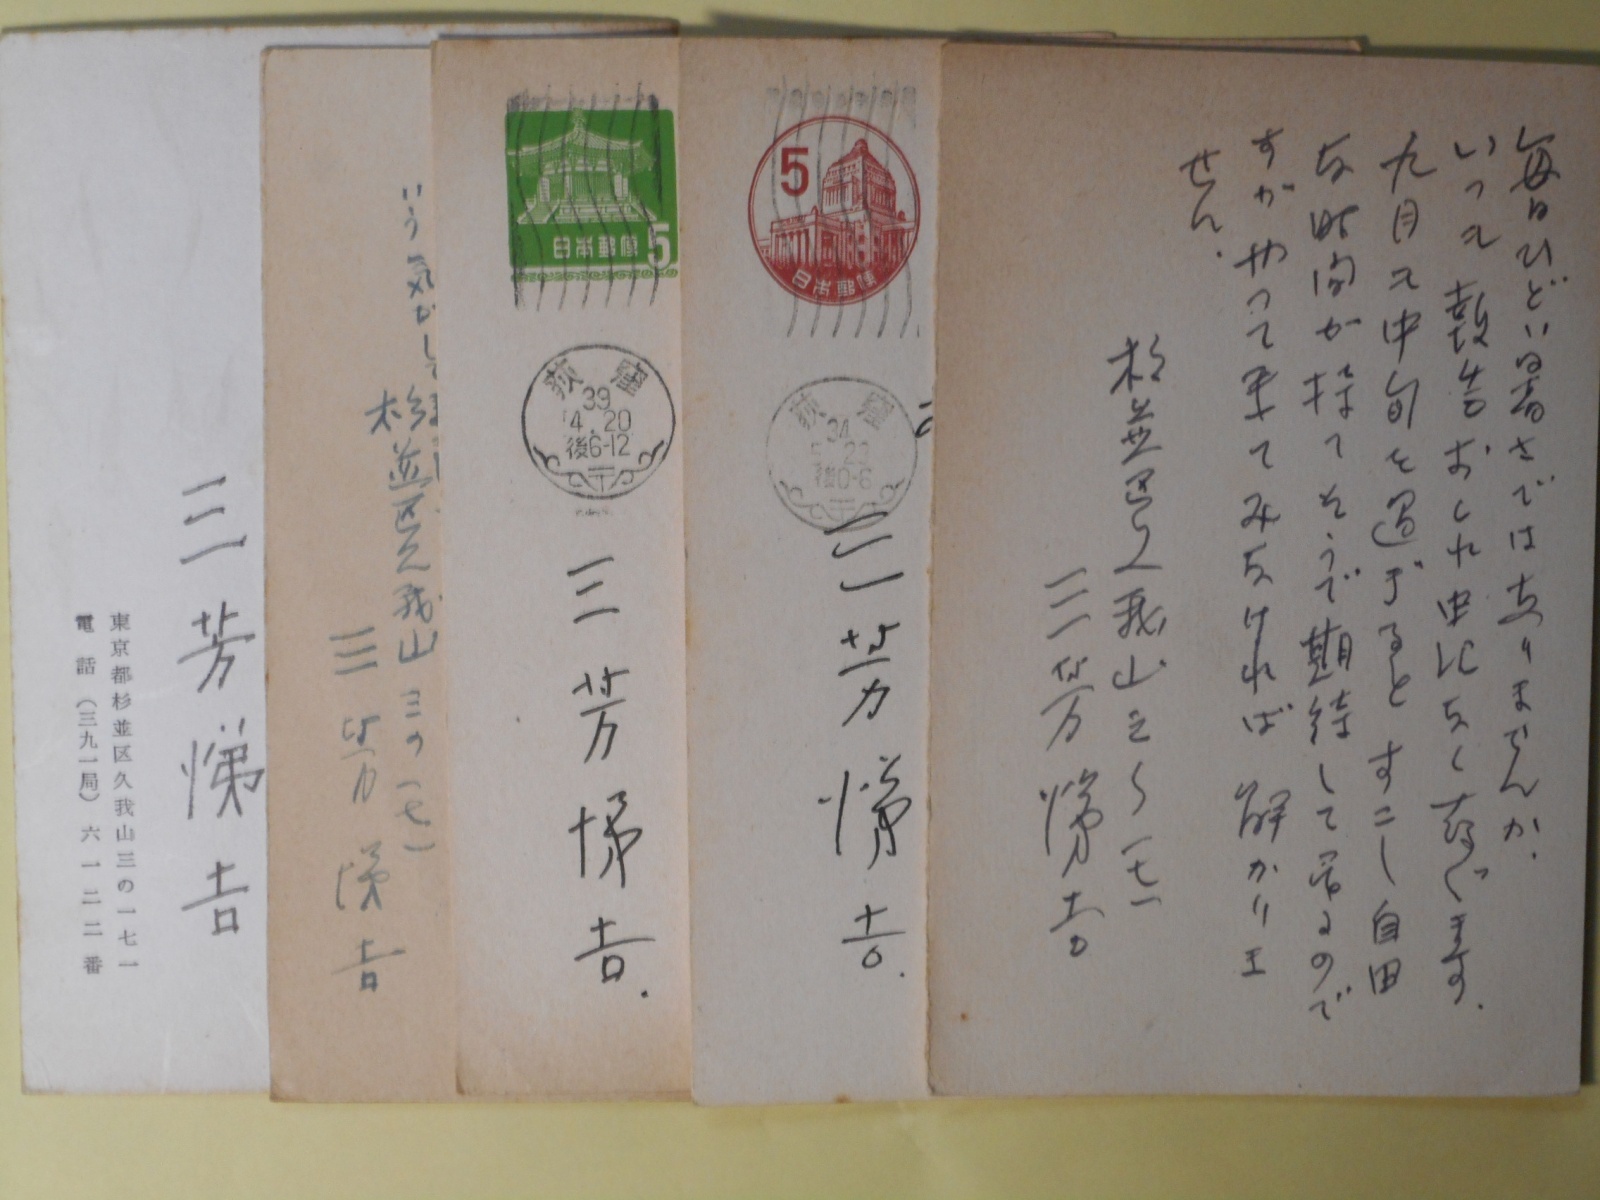 毎日ひどい暑さではありませんか.
いつも鼓笛おくれ申になく存じます.
九月も中旬を過ぎるとすこし自由
な時間が持てそうで期待して居るので
すがやって来てみなければ解かりま
せん.
杉並区久我山三〜一七一
三芳悌吉
5
日本郵便
荻窪
34
後0-6
三芳悌吉.
日本郵便5
荻窪
39
4.20
後6-12
三芳悌吉.
いう気がして
杉並区久我山三の一七一
三芳悌吉
三芳悌吉
東京都杉並区久我山三の一七一
電話(三九一局)六一二二番